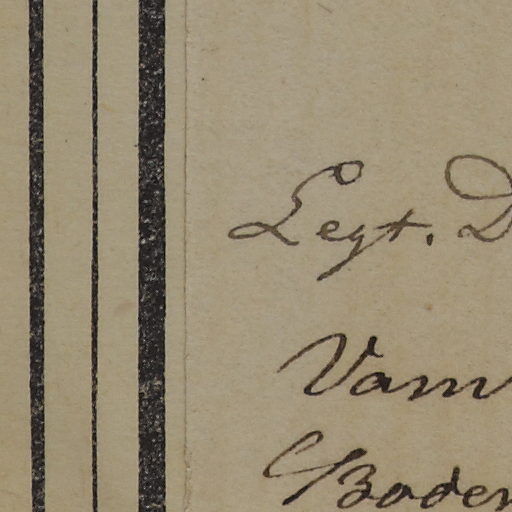 Legt. D
Vam
Boden